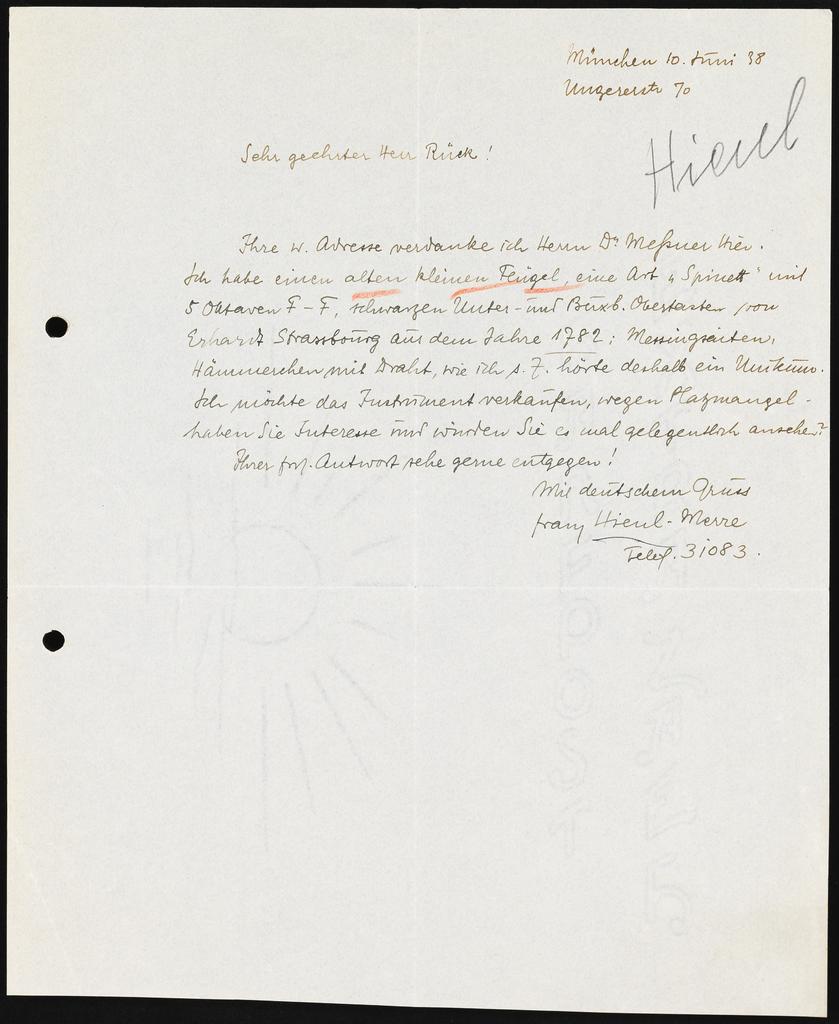 München 10. Juni 38
Ungererstr 70
Hienl
Sehr geehrter Herr Rück!
Ihre w. Adresse verdanke ich Herrn Dr Meßner hier.
Ich habe einen alten kleinen Flügel, eine Art „Spinett" mit
5 Oktaven F-F, schwarzen Unter- und Buxb. Obertasten von
Erhardt Strassbourg aus dem Jahre 1782; Messingsaiten,
Hämmerchen mit Draht, wie ich s. Z. hörte deshalb ein Unikum.
Ich möchte das Instrument verkaufen, wegen Platzmangel-
haben Sie Interesse und würden Sie es mal gelegentlich ansehen?
Ihrer frdl. Antwort sehe gerne entgegen!
Mit deutschem Gruss
Franz Hienl-Merre
Telef. 31083.